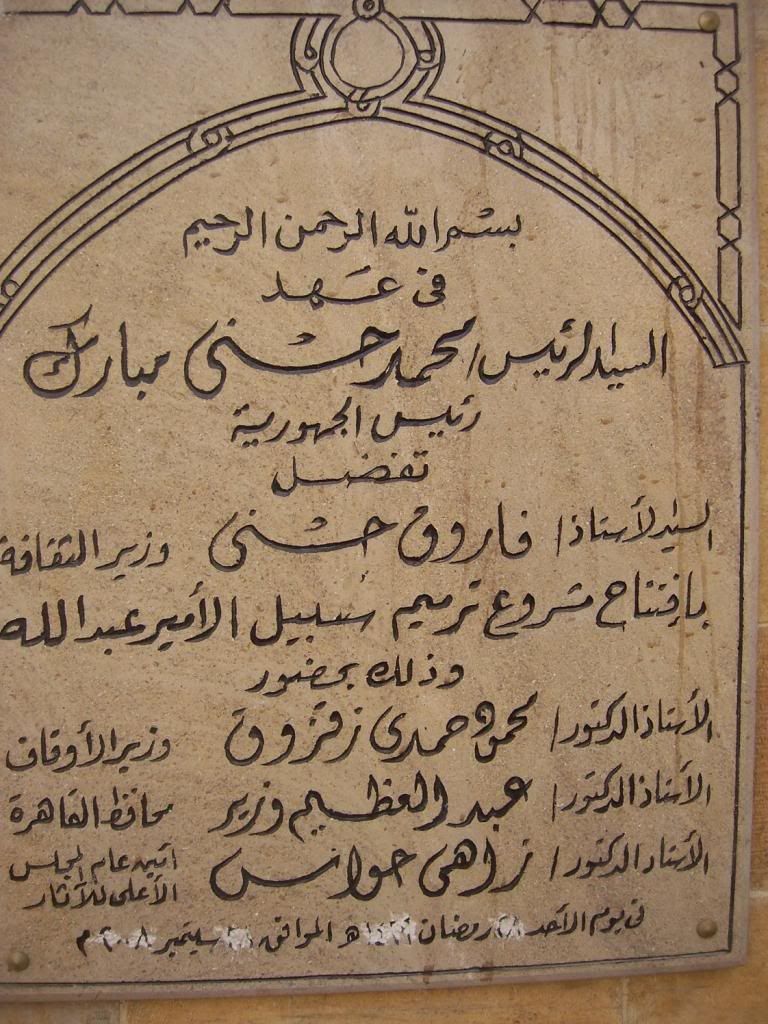 بسم الله الرحمن الرحيم
في عهد
السيد الرئيس / محمد حسنى مبارك
رئيس الجمهورية
تفضل
السيد الأستاذ / فاروق حسنى وزير الثقافة
بافتتاح مشروع ترميم سبيل الأمير عبد الله
وذلك بحضور
الأستاذ الدكتور / محمود حمدى زقزوق وزير الأوقاف
الأستاذ الدكتور / عبد العظيم وزير محافظ القاهرة
الأستاذ الدكتور / زاهى حواس امين عام المجلس الأعلى للآثار
فى يوم الأحد رمضان هـ الموافق سبتمبر ٢٠٠٨ م